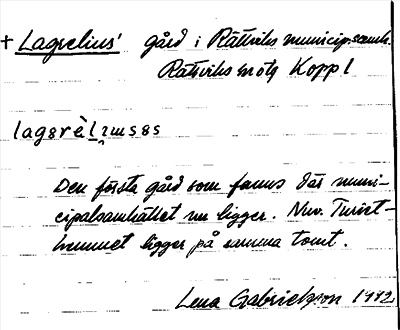 + Lagrelius' gård i Rättviks municip.samh.
Rättviks sn o tg Kopp l
Den första gård som fanns där muni-
cipalsamhället nu ligger. Nuv. Turist-
hemmet ligger på samma tomt.
Lena Gabrielsson 1992